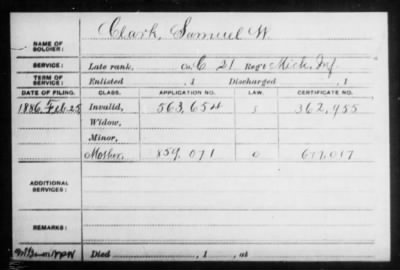 NAME OF SOLDIER: Clark, Samuel W.
SERVICE: Late rank, Co. C 21 Reg't Mich. Inf.
TERM OF SERVICE: Enlisted , 1 Discharged , 1
DATE OF FILING. CLASS. APPLICATION NO. LAW. CERTIFICATE NO.
1886, Feb. 25 Invalid, 563,654 362,955
Widow,
Minor,
Mother, 859,071 617,017
ADDITIONAL SERVICES:
REMARKS:
Died , 1 , at